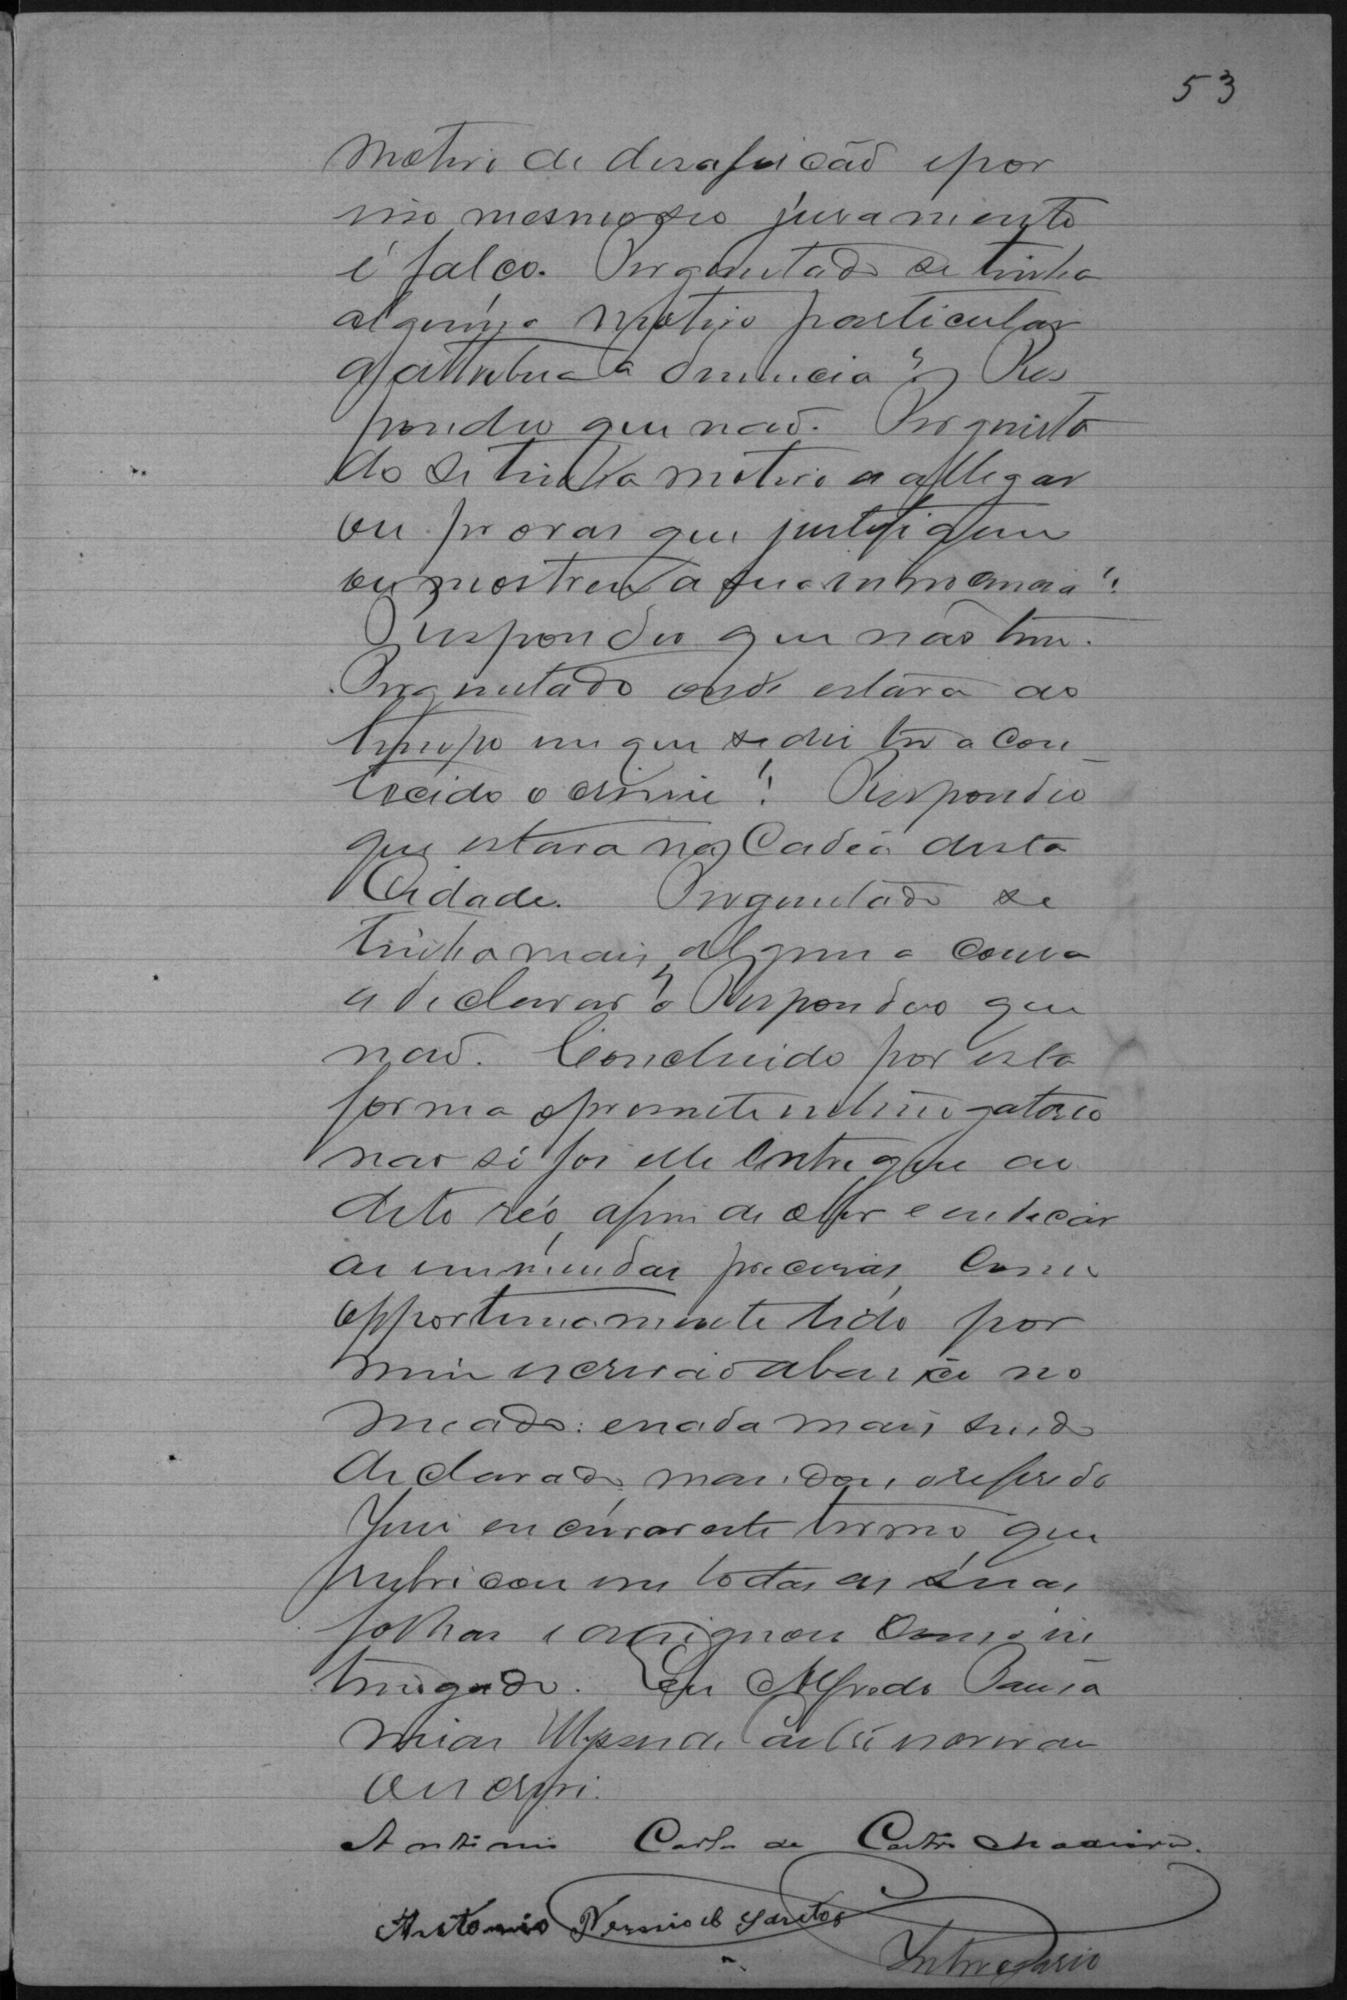 53
motivo de desafeição e por
isso mesmo seo juramento
é falço. Perguntado se tinha
algum motivo particular
q attribua a denuncia? Res
pondeo que naõ. Pergunta
do se tinha motivo a allegar
ou provas que justifiquem
ou mostrem a sua innocencia?
Respondeo que não tem.
Perguntado onde estava ao
tempo em que se diz ter acon
tecido o crime? Respondeo
que estava na Cadeia desta
Cidade. Perguntado se
tinha mais alguma cousa
a declarar? Respondeo que
naõ. Concluido por esta
forma o presente interrogatorio
nao só foi elle entregue ao
dito réo, afim de o ler e indicar
as emmendas precisas, como
opportunamente lido por
mim escrivaõ abaixo no
meado: e nada mais sendo
declarado, mandou o referido
Juiz encerrar este termo, que
rubricou em todas as suas
folhas e assignou com o in
terrogado. Eu Alfredo
escrivão
o escrevi.
Antonio Carlos de Castro Madeira.
Antonio dos Santos